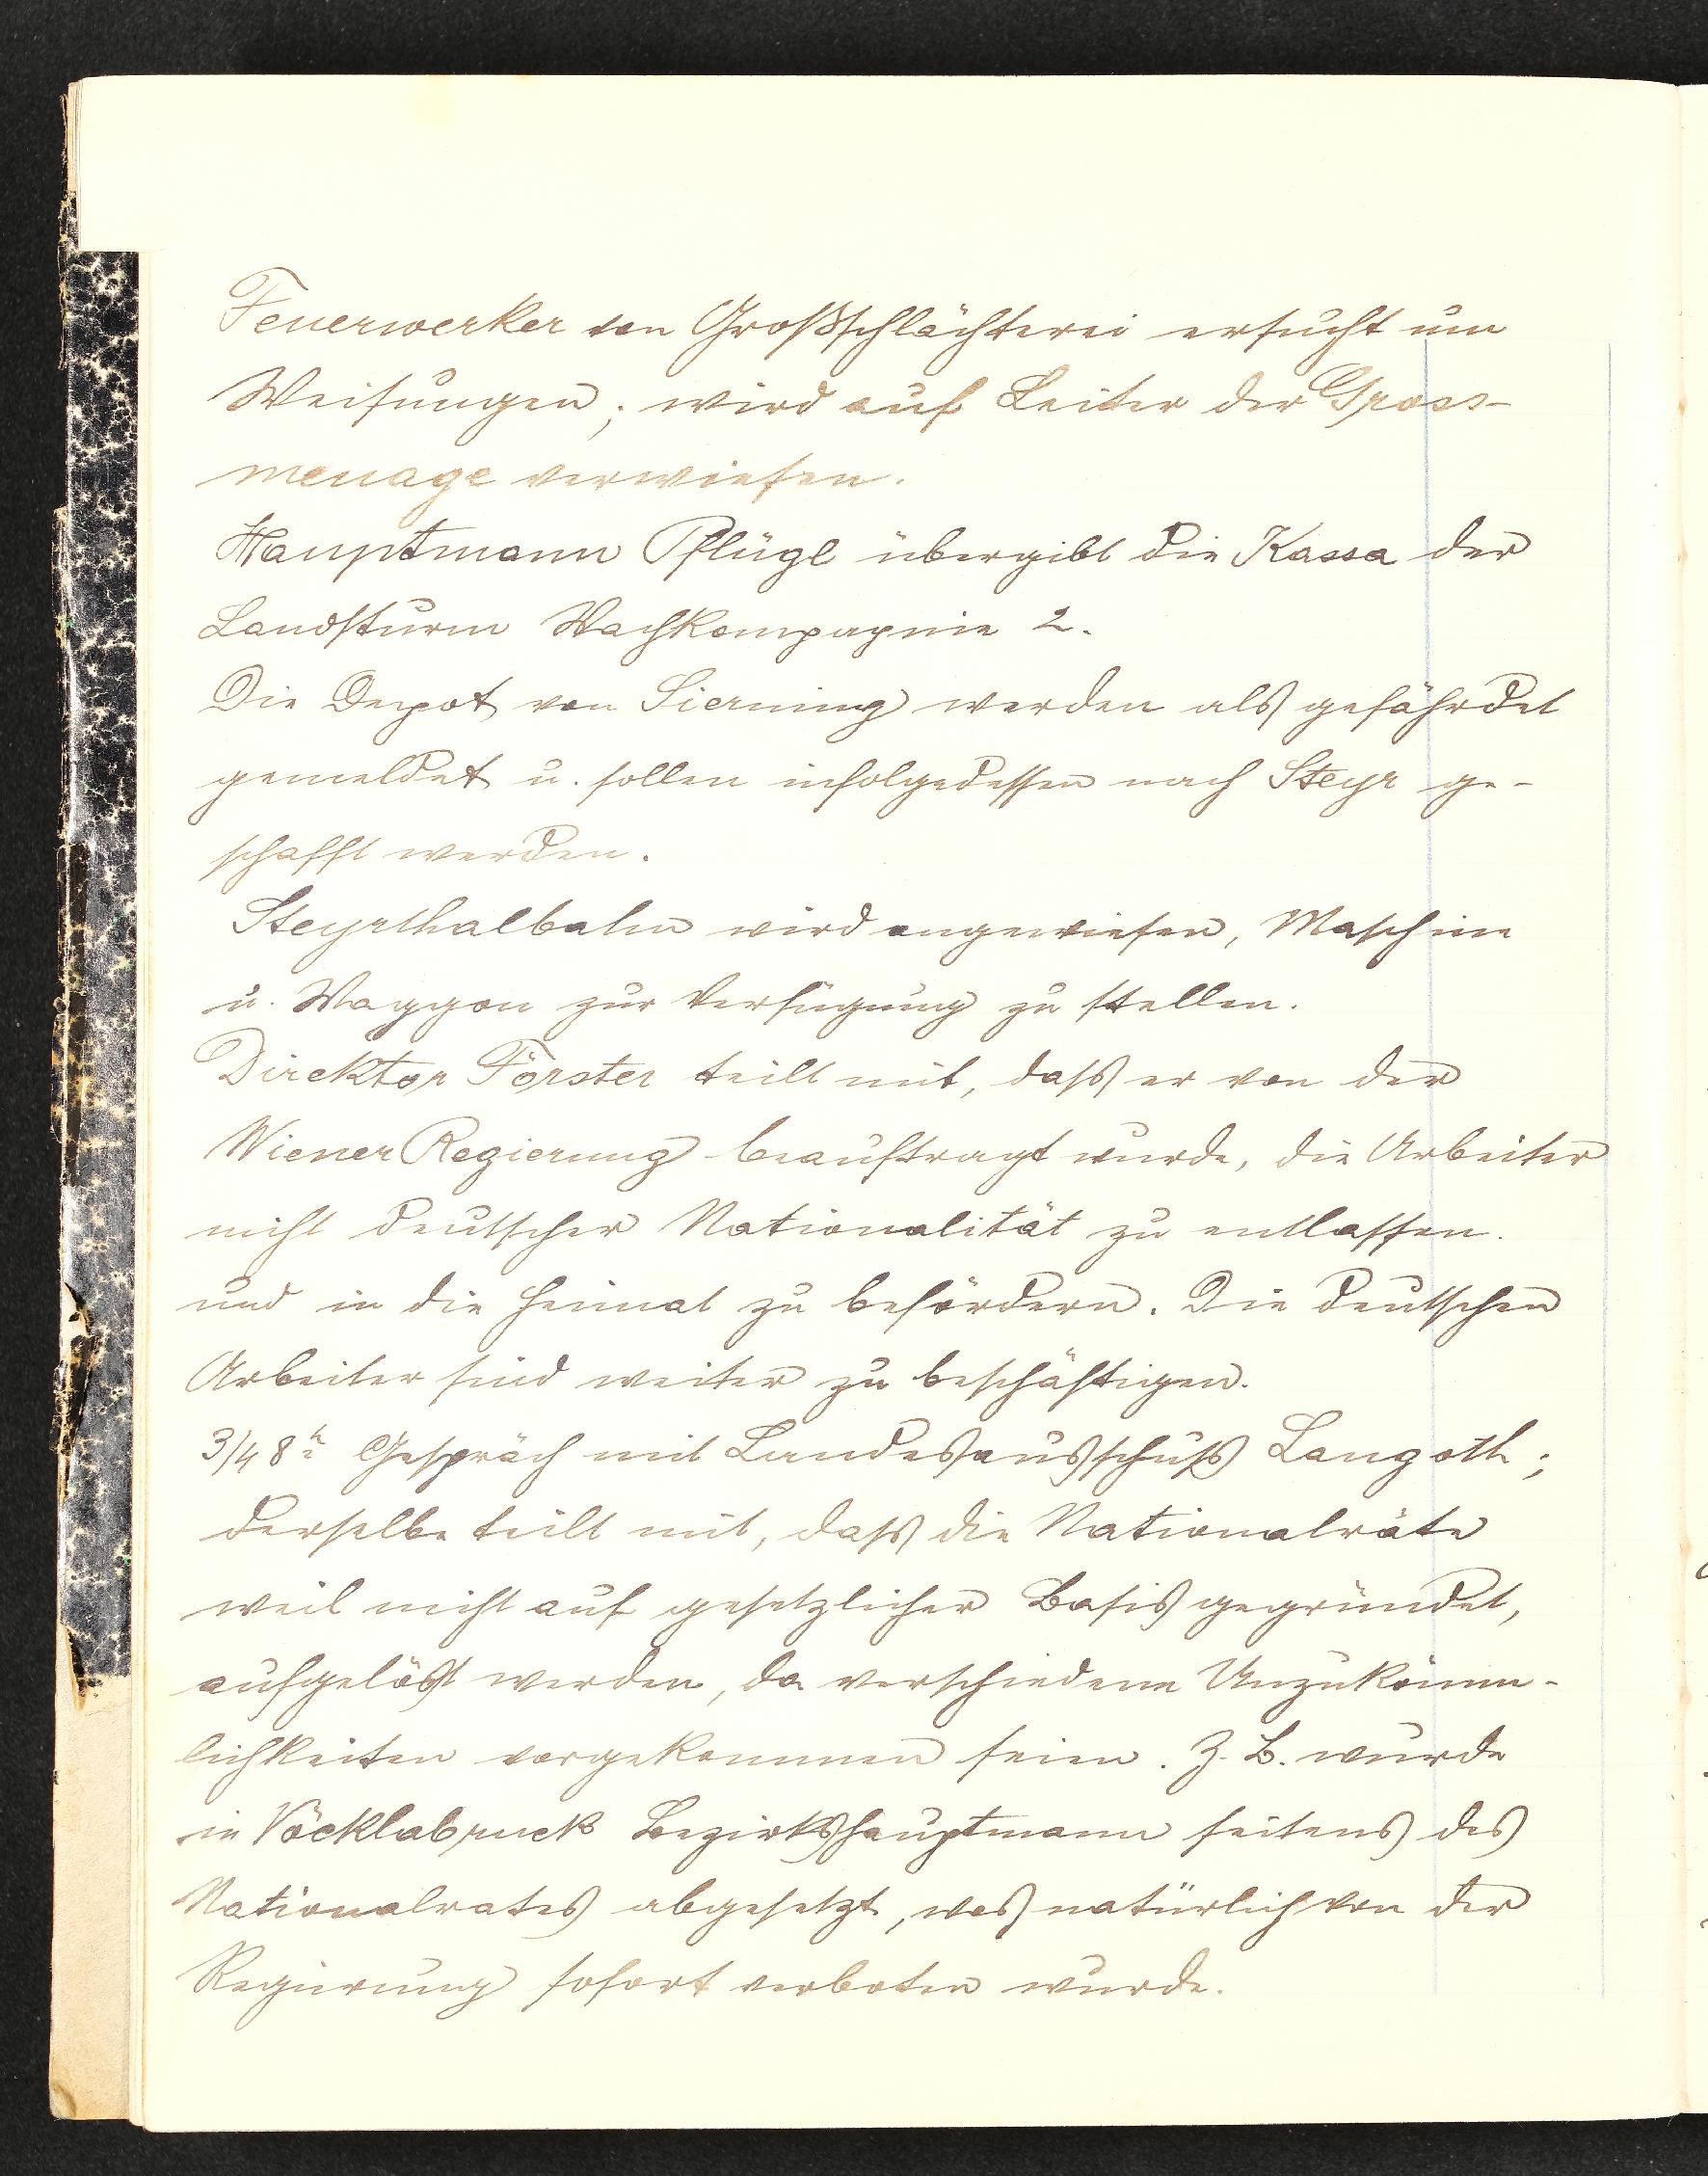 Feuerwerker von Großschlächterei ersucht um
Weisungen; wird auf Leiter der Gross-
menage verwiesen.
Hauptmann Pflügl übergibt die Kassa der
Landsturm Wachkompagnie 2.
Die Depot von Sierning werden als gefährdet
gemeldet u. sollen infolgedessen nach Steyr ge-
schafft werden.
Steyrthalbahn wird angewiesen, Maschine
u. Waggon zur Verfügung zu stellen.
Direktor Förster teilt mit, daß er von der
Wiener Regierung beauftragt wurde, die Arbeiter
nicht deutscher Nationalität zu entlassen.
und in die Heimat zu befördern. Die deutschen
Arbeiter sind weiter zu beschäftigen.
3/4 8h Gespräch mit Landesausschuß Langoth;
derselbe teilt mit, daß die Nationalräte
weil nicht auf gesetzlicher Basis gegründet,
aufgelöst werden, da verschiedene Unzukömm-
lichkeiten vorgekommen seien. Z. B. wurde
in Vöcklabruck Bezirkshauptmann seitens des
Nationalrates abgesetzt, was natürlich von der
Regierung sofort verboten wurde.